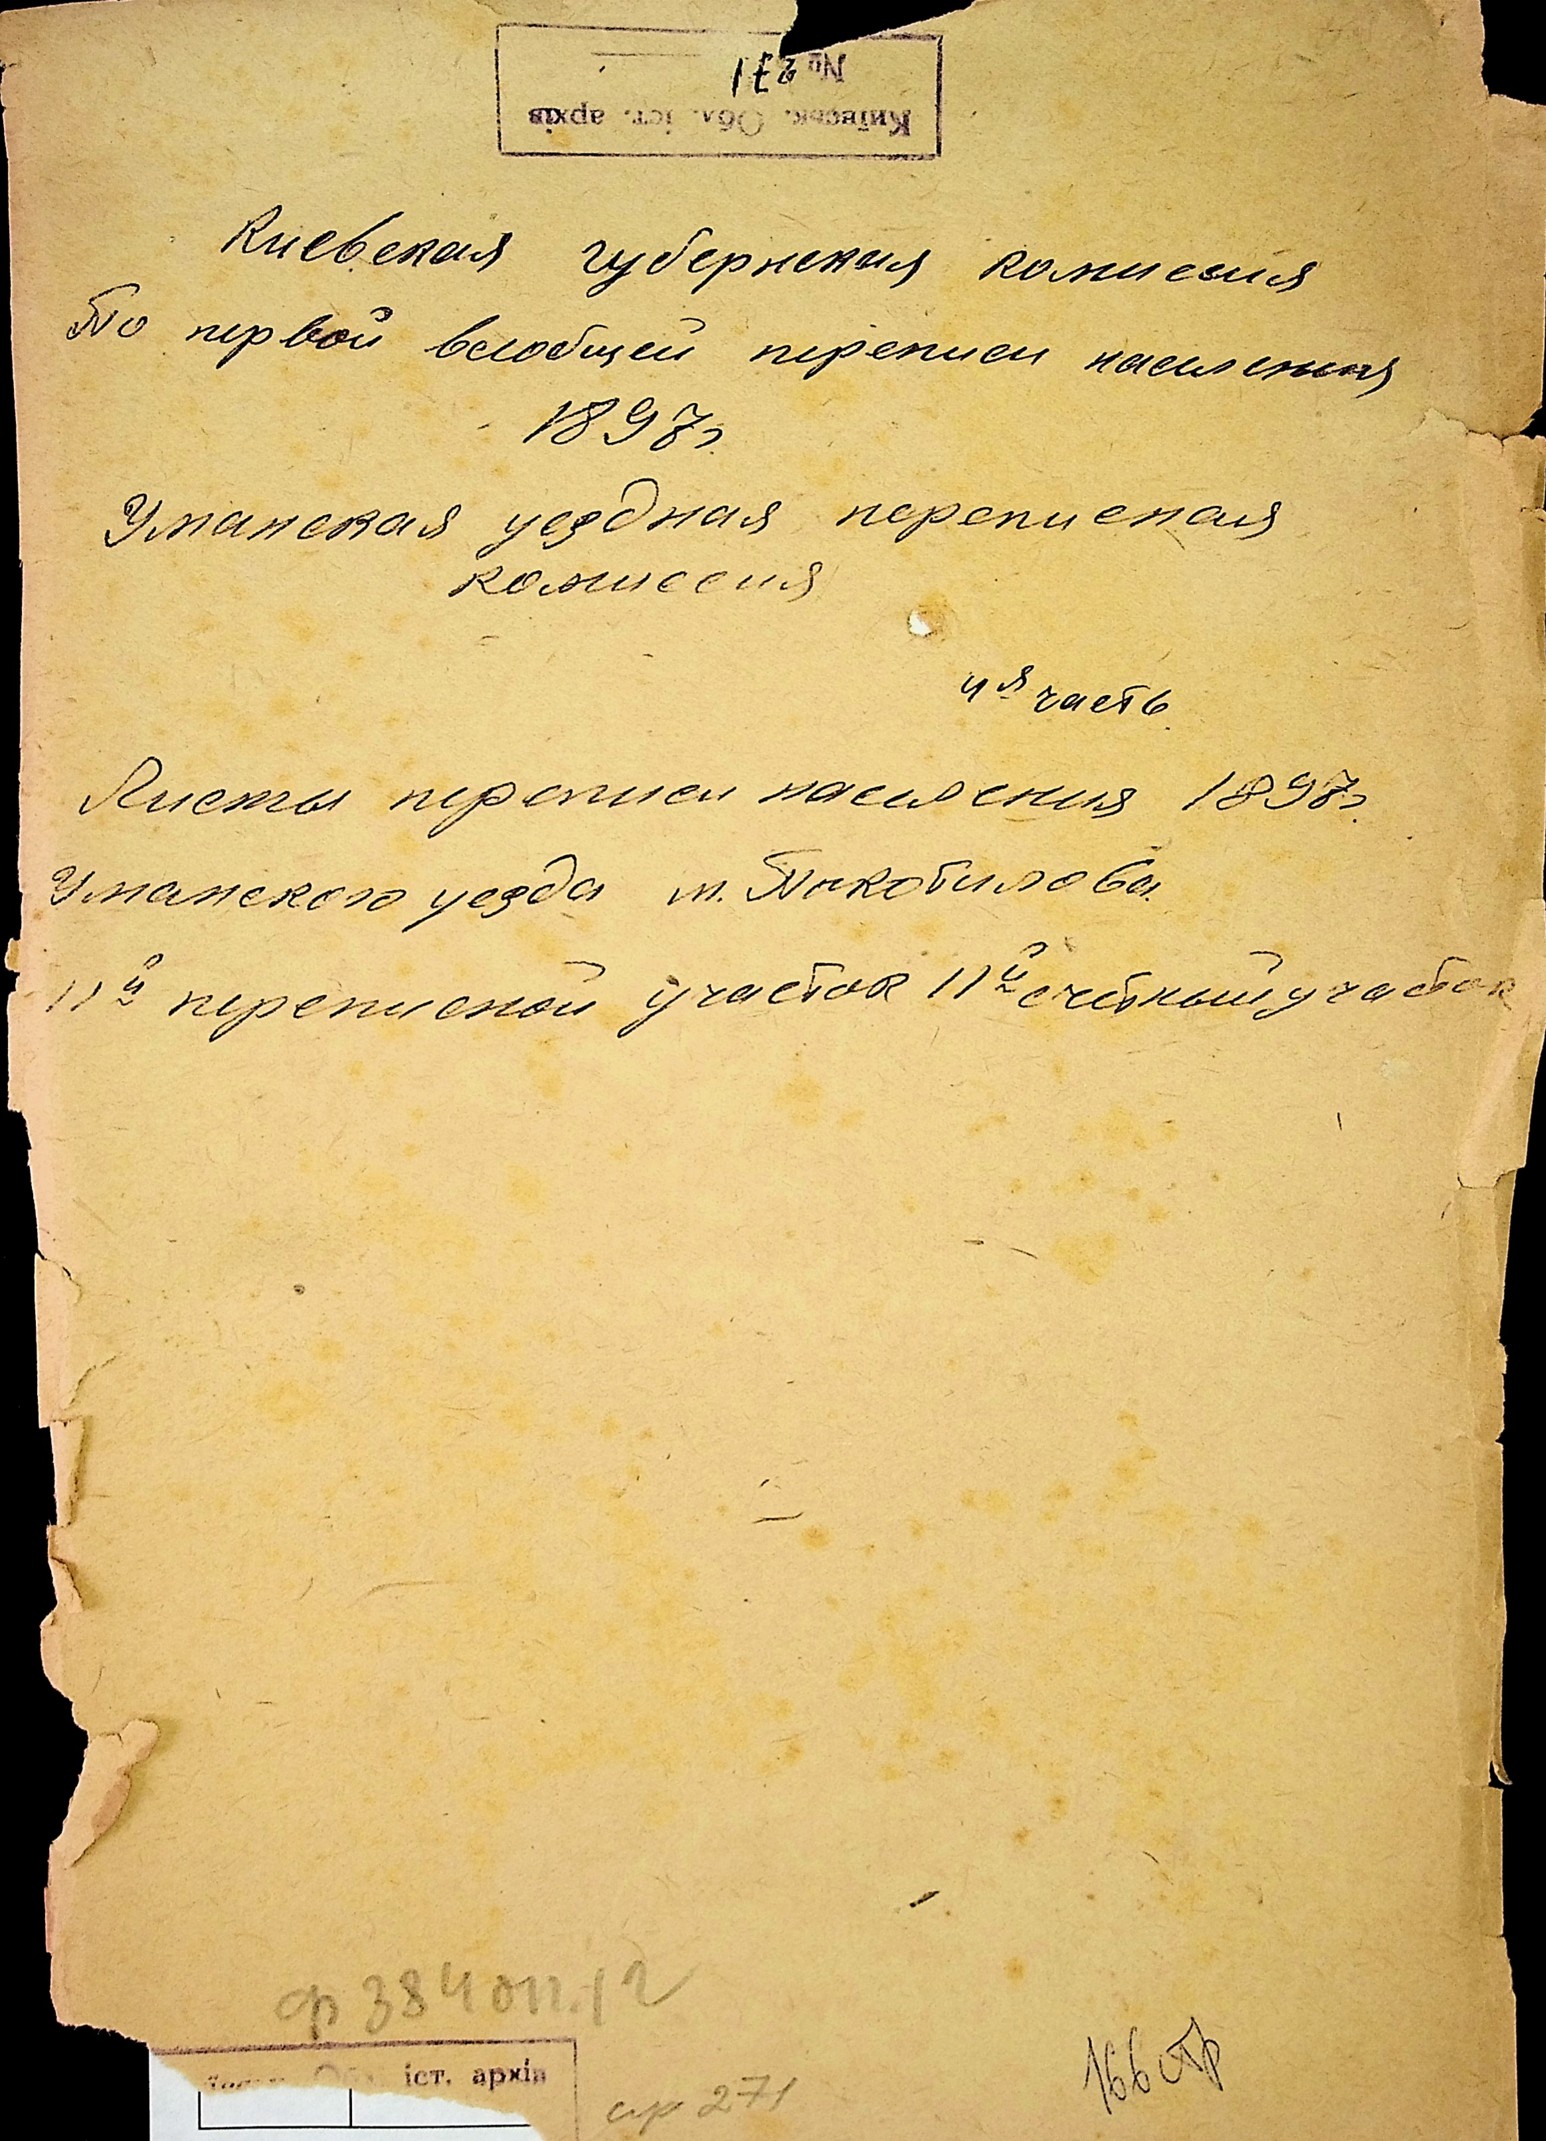 № 271
Київськ. Обл. іст. архів
Киевская губернская комиссия
По первой всеобщей переписи населения
1897г.
Уманская уездная переписная
комиссия
4я часть.
Листы переписи населения 1897г.
Уманского уезда м. Покотилова.
11й переписной участок 11й счётный участок
ф 384 оп. 12
Обл. іст. архів
ср 271
166 стр